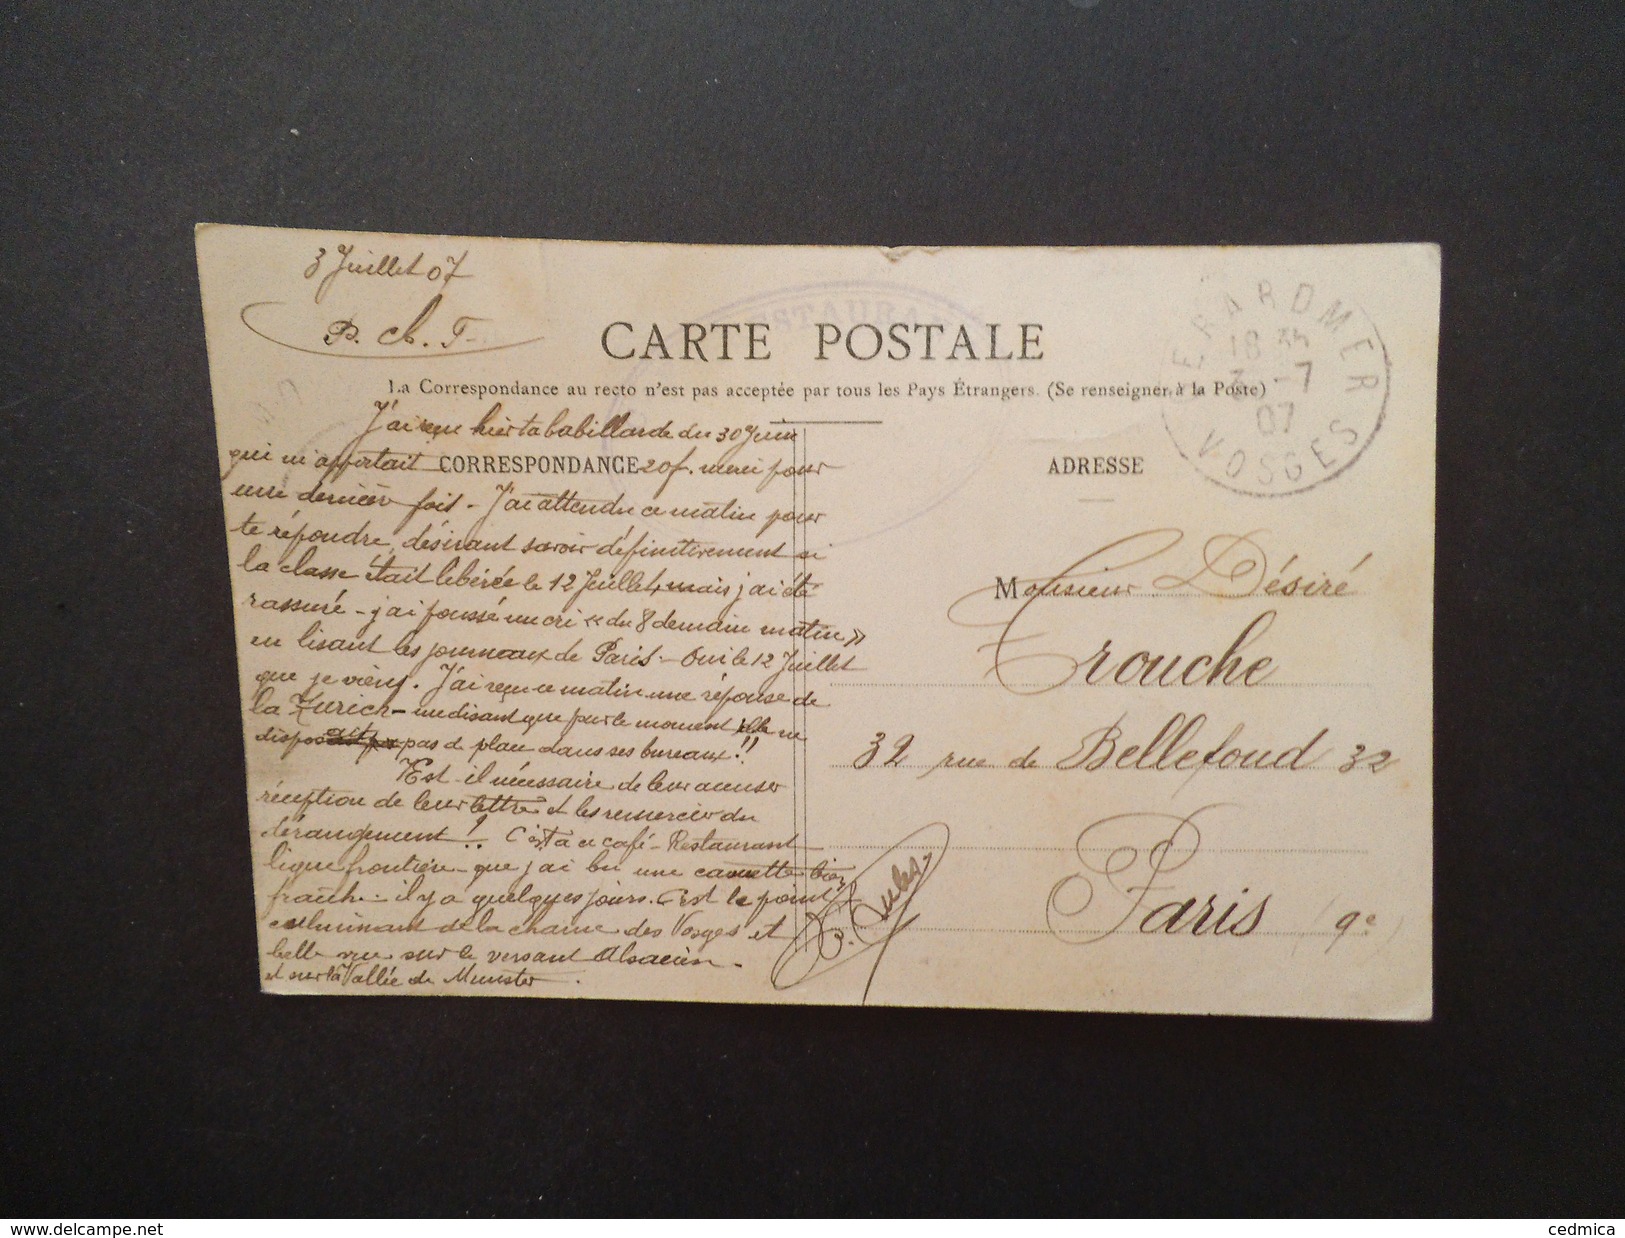 3 Juillet 07
P. Ch. T.
RESTAURA
CARTE POSTALE
La Correspondance au recto n'est pas acceptée par tous les Pays Étrangers. (Se renseigner à la Poste)
GERARDMER
18 35
3 -7
07
VOSGES
J'ai reçu hier ta babillarde du 30 Juin
qui m'apportait CORRESPONDANCE 20f. merci pour
une dernière fois - J'ai attendu ce matin pour
te répondre, désirant savoir définitivement si
la classe était libérée le 12 Juillet, mais j'ai été
rassuré - j'ai poussé un cri « du 8 demain matin »
en lisant les journaux de Paris - Oui le 12 Juillet
que je viens. J'ai reçu ce matin une réponse de
la Zurich - me disant que pour le moment elle ne
dispos pas de place dans ses bureaux !!
Est-il nécessaire de leur accuser
réception de leur lettre et les remercier du
dérangement ! C'est à ce café-Restaurant
ligne frontière - que j'ai bu une canette bien
fraîche - il y a quelques jours. C'est le point
culminant de la chaîne des Vosges et
belle vue sur le versant Alsacien -
et sur la Vallée de Munster.
ADRESSE
Monsieur Désiré
Crouche
32 rue de Bellefond 32
Paris (9e)